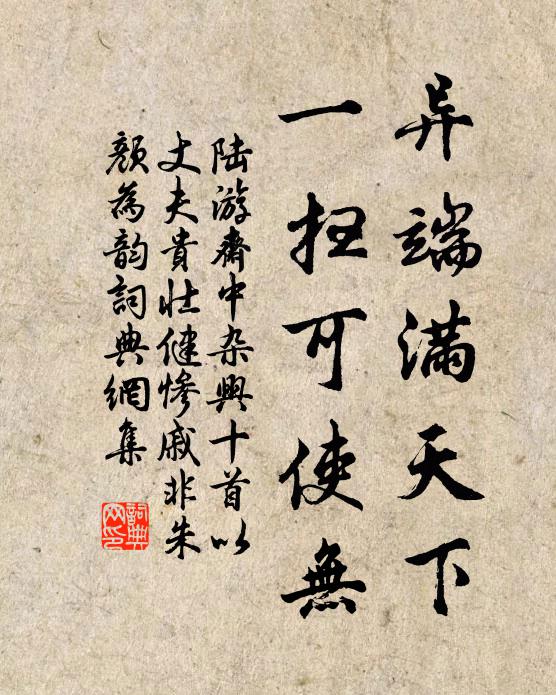 异端满天下
一扫可使無
陆游齋中杂興十首以
丈夫貴壮健惨戚非朱
顔為韵詞典網集
詞典
网印